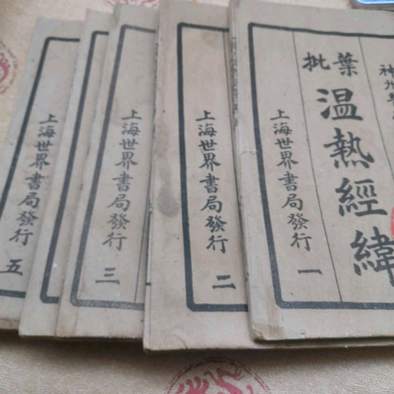 神州
葉批
温熱經緯
上海世界書局發行 一
上海世界書局發行 二
上海世界書局發行 三
上海世界書局發行 五